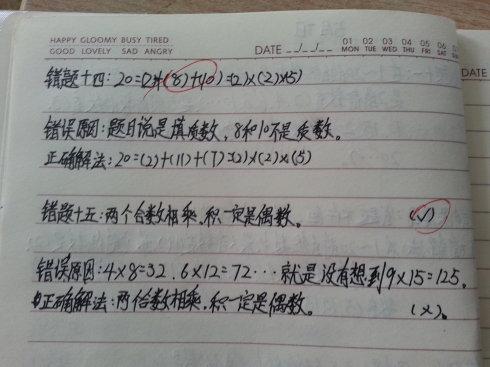 HAPPY GLOOMY BUSY TIRED
GOOD LOVELY SAD ANGRY
DATE __/__/__
01 02 03 04 05 06
MON TUE WED THU FRI SAT
DATE
错题十四:20=(2)+(8)+(10)=(2)×(2)×(5)
错误原因:题目说是填质数,8和10不是质数。
正确解法:20=(2)+(11)+(7)=(2)×(2)×(5)
错题十五:两个合数相乘,积一定是偶数。 (√)
错误原因:4×8=32,6×12=72…就是没有想到9×15=125。
正确解法:两个合数相乘,积一定是偶数。 (×)。